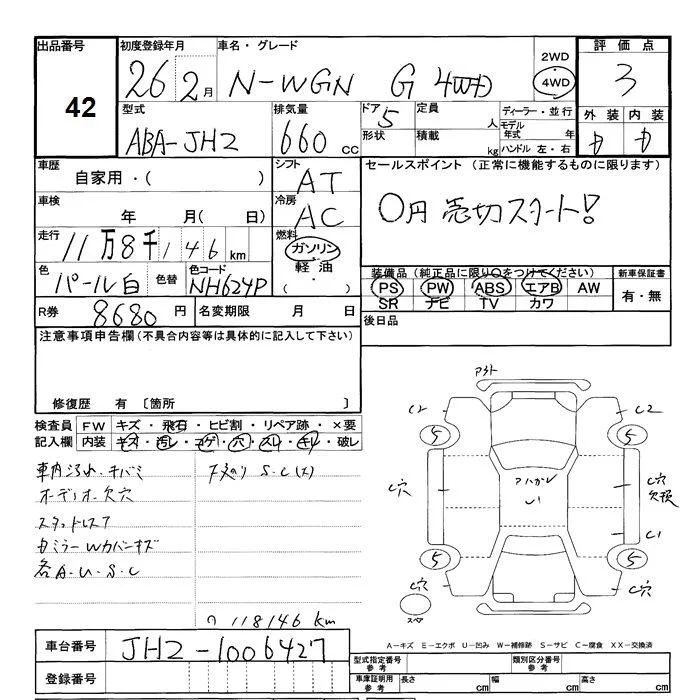 出品番号 初度登録年月 車名・グレード 評価点
42 26年2月 N-WGN G 4WD 2WD 4WD 3
型式 排気量 ドア 定員 ディーラー・並行 外装 内装
ABA-JH2 660cc 5 人 モデル年式 年
形状 積載 kg ハンドル 左・右
車歴 シフト セールスポイント (正常に機能するものに限ります)
自家用・( ) AT
車検 冷房 0円売切スタート!
年 月(日) AC
走行 燃料
11万8千146km ガソリン
色 色替 色コード 軽油 装備品 (純正品に限り○をつけてください) 新車保証書
パール白 NH624P ( ・ ) PS PW ABS エアB AW 有・無
SR ナビ TV カワ
R券 8680円 名変期限 月 日 後日品
注意事項申告欄(不具合内容等は具体的に記入して下さい)
修復歴 有 〔箇所 〕
検査員 FW キズ・飛石・ヒビ割・リペア跡・×要
記入欄 内装 キズ・汚レ・コゲ・穴・スレ・キレ・破レ
車内汚れ・キバミ 下廻り S・C(大)
オーディオ欠穴
スタッドレス7
各A・U・S・C
118146 km
C2 C2
5 5
C穴 C穴
欠損
U1 C1
5 5
C穴 C穴
スペア
A-キズ E-エクボ U-凹み W-補修跡 S-サビ C-腐食 XX-交換済
車台番号 JH2-1006427 型式指定番号 参考 類別区分番号 参考
登録番号 車庫証明用 参考 長さ cm 幅 cm 高さ cm